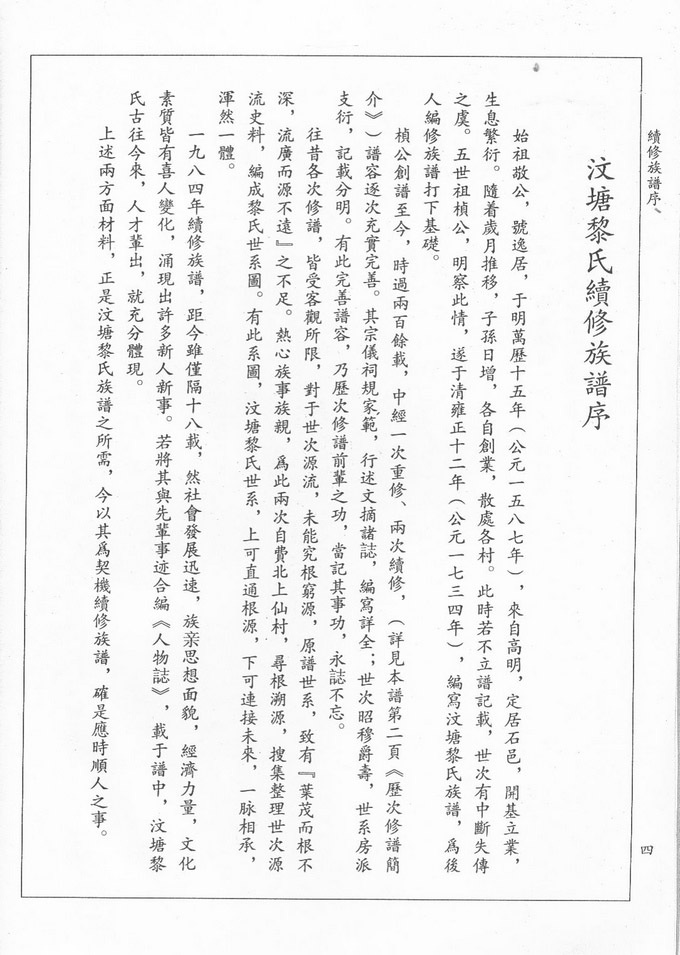 續修族譜序
四
汶塘黎氏續修族譜序
始祖敬公，號逸居，于明萬歷十五年（公元一五八七年），來自高明，定居石邑，開基立業，
生息繁衍。隨着歲月推移，子孫日增，各自創業，散處各村。此時若不立譜記載，世次有中斷失傳
之虞。五世祖楨公，明察此情，遂于清雍正十二年（公元一七三四年），編寫汶塘黎氏族譜，爲後
人編修族譜打下基礎。
楨公創譜至今，時過兩百餘載，中經一次重修、兩次續修，（詳見本譜第二頁《歷次修譜簡
介》）譜容逐次充實完善。其宗儀祠規家範，行述文摘諸誌，編寫詳全；世次昭穆爵壽，世系房派
支衍，記載分明。有此完善譜容，乃歷次修譜前輩之功，當記其事功，永誌不忘。
往昔各次修譜，皆受客觀所限，對于世次源流，未能究根窮源，原譜世系，致有『葉茂而根不
深，流廣而源不遠』之不足。熱心族事族親，爲此兩次自費北上仙村，尋根溯源，搜集整理世次源
流史料，編成黎氏世系圖。有此系圖，汶塘黎氏世系，上可直通根源，下可連接未來，一脉相承，
渾然一體。
一九八四年續修族譜，距今雖僅隔十八載，然社會發展迅速，族亲思想面貌，經濟力量，文化
素質皆有喜人變化，涌現出許多新人新事。若將其與先輩事迹合編《人物誌》，載于譜中，汶塘黎
氏古往今來，人才輩出，就充分體現。
上述兩方面材料，正是汶塘黎氏族譜之所需，今以其爲契機續修族譜，確是應時順人之事。